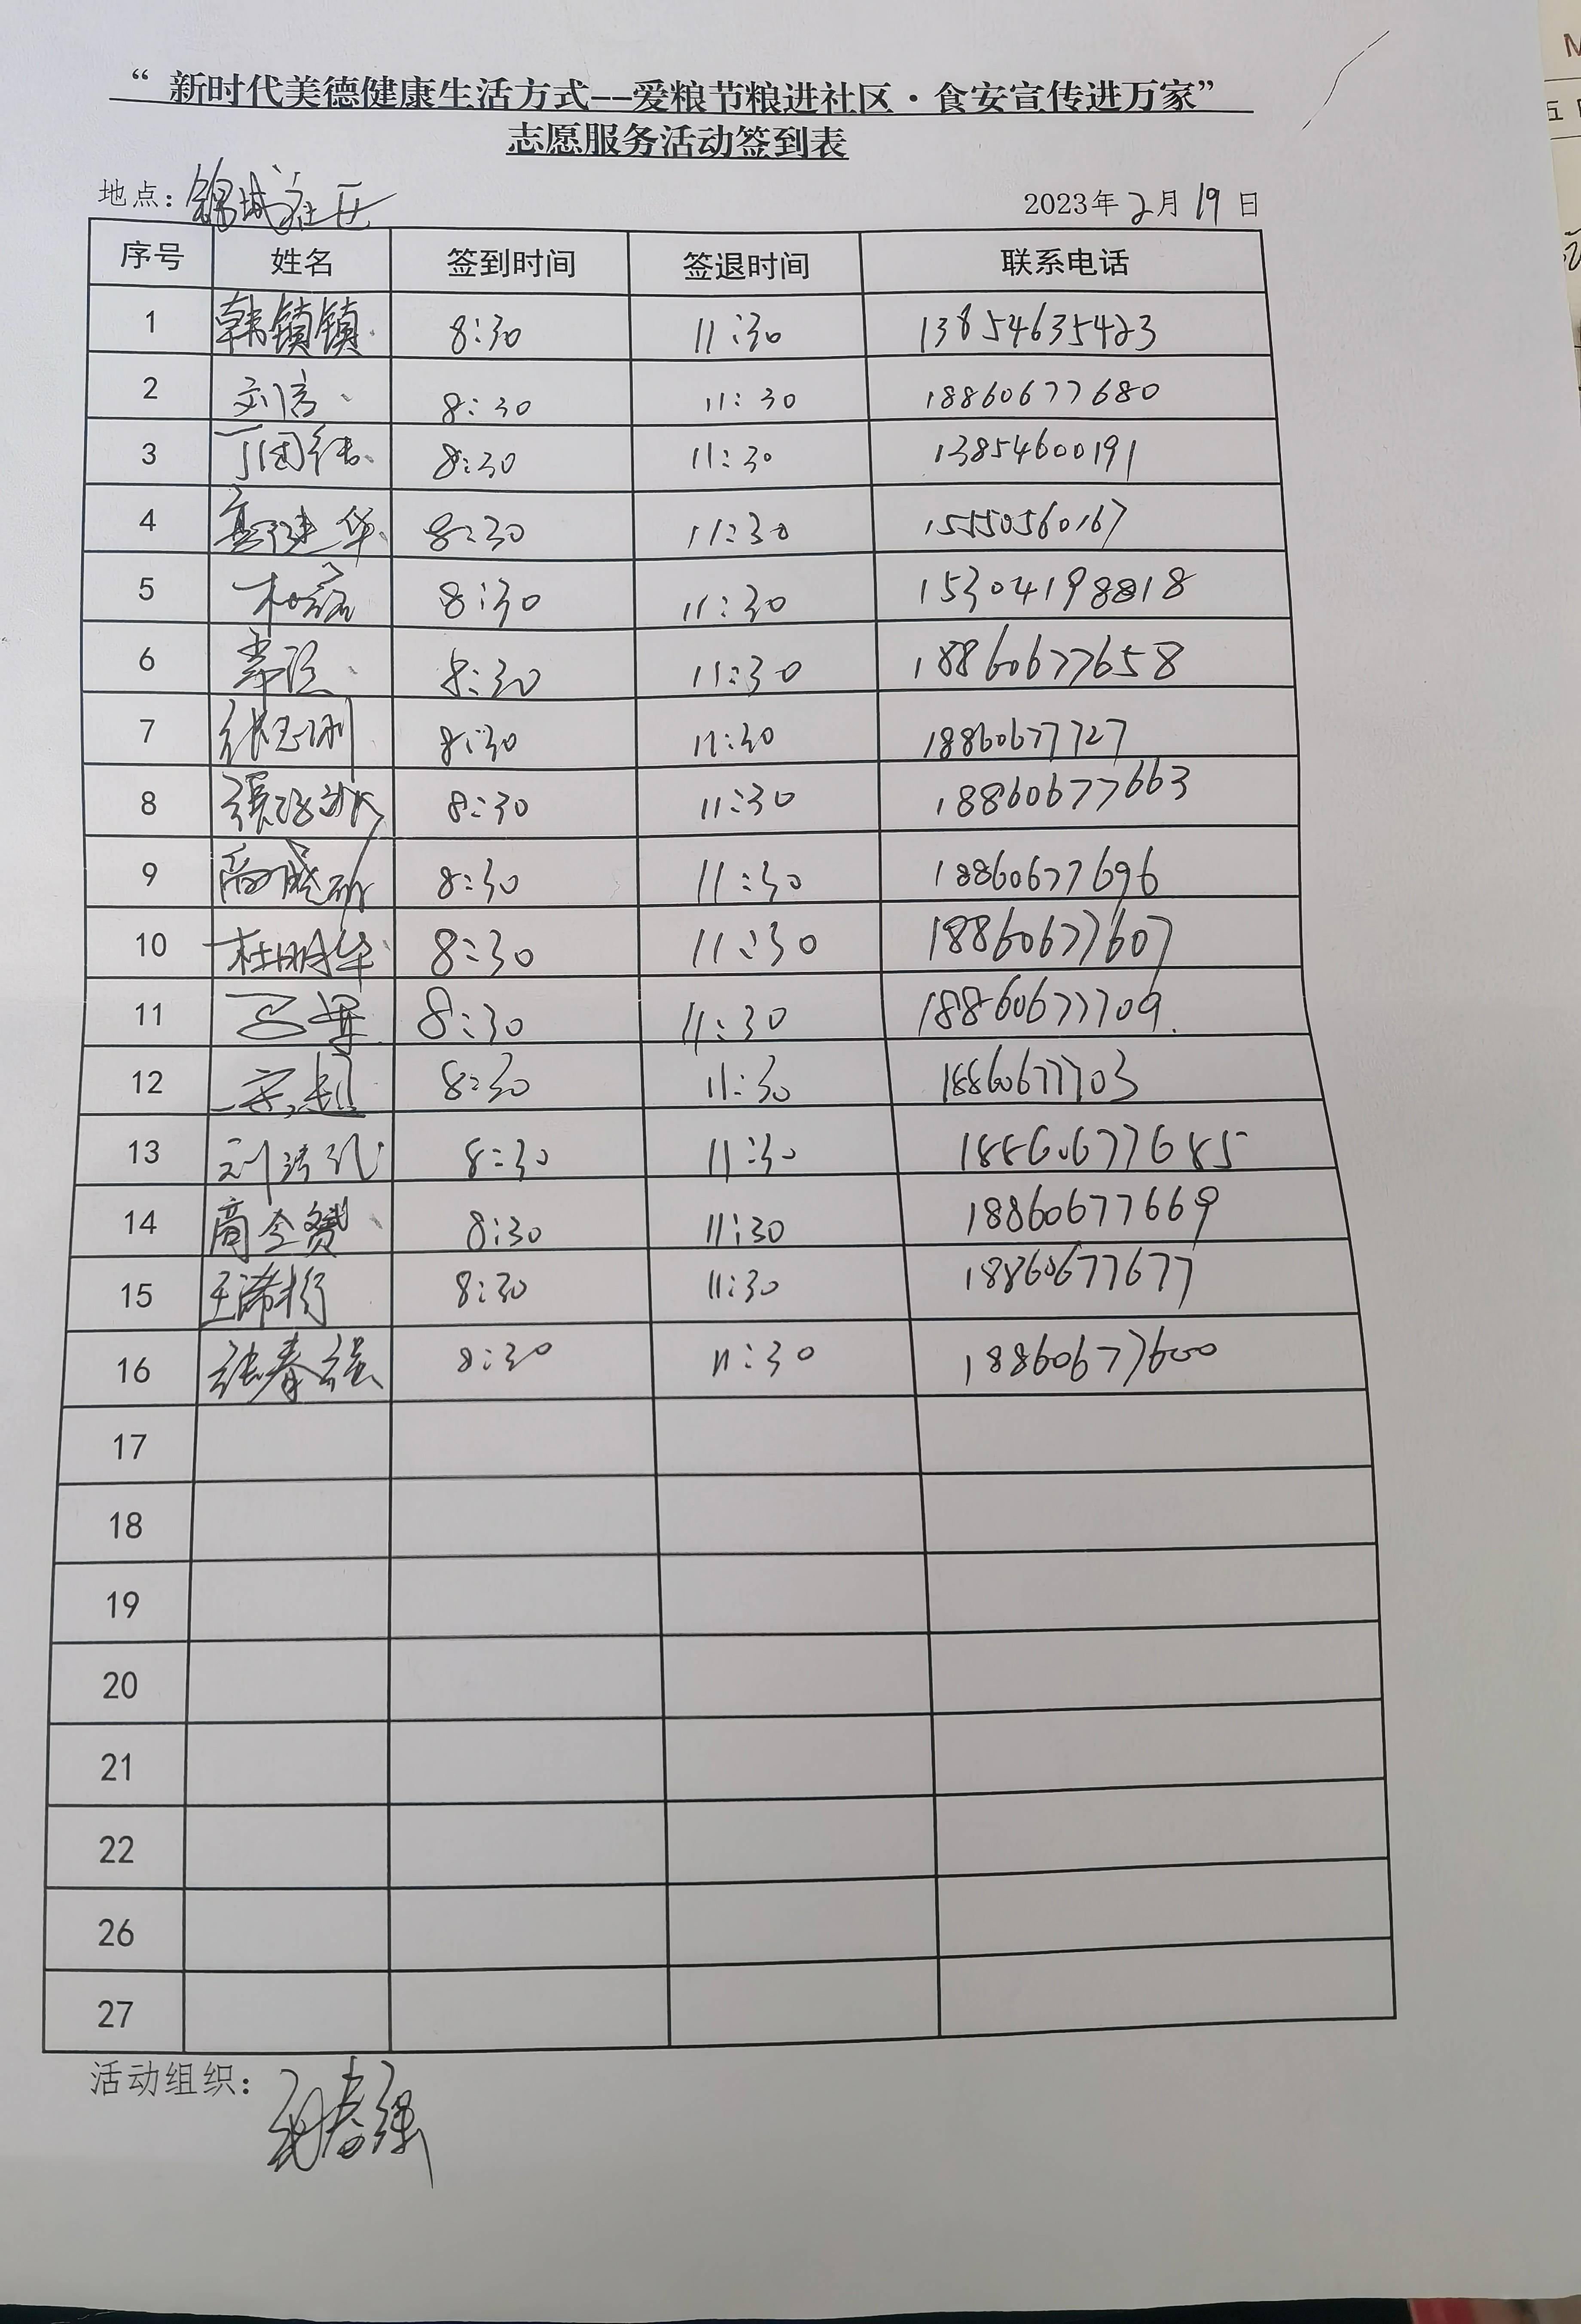 “ 新时代美德健康生活方式--爱粮节粮进社区·食安宣传进万家”
志愿服务活动签到表
地点：锦城社区 2023年2月19日
序号 姓名 签到时间 签退时间 联系电话
1 韩镇镇 8:30 11:30 13854635423
2 刘信 8:30 11:30 18860677680
3 丁团结 8:30 11:30 13854600191
4 高建华 8:30 11:30 15550560167
5 杜磊 8:30 11:30 15304198818
6 8:30 11:30 18860677658
7 8:30 11:30 18860677727
8 8:30 11:30 18860677663
9 8:30 11:30 18860677696
10 杜明华 8:30 11:30 18860677607
11 8:30 11:30 18860677709.
12 宋超 8:30 11:30 18860677703
13 8:30 11:30 18860677685
14 商全赞 8:30 11:30 18860677669
15 8:30 11:30 18860677677
16 张春强 8:30 11:30 18860677600
17
18
19
20
21
22
26
27
活动组织：张春强